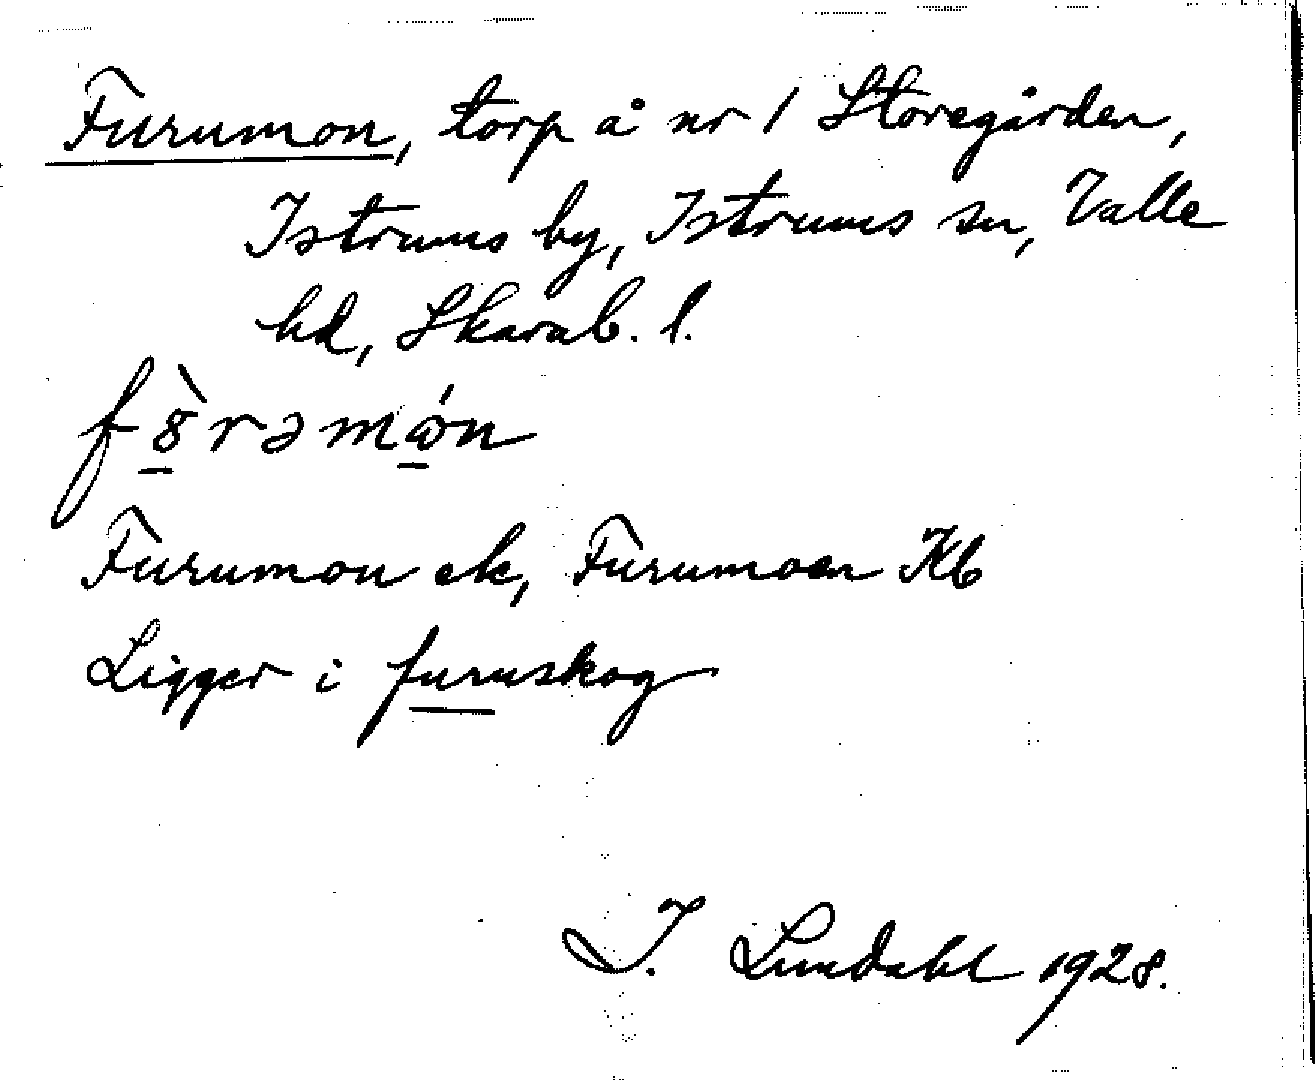 Furumon, torp å nr 1 Storegården,
Istrums by, Istrums sn, Valle
hd, Skarab. l.
f8̱̀rəmώ̱n
Furumon ek, Furumoen Kb
Ligger i furuskog
I. Lundahl 1928.